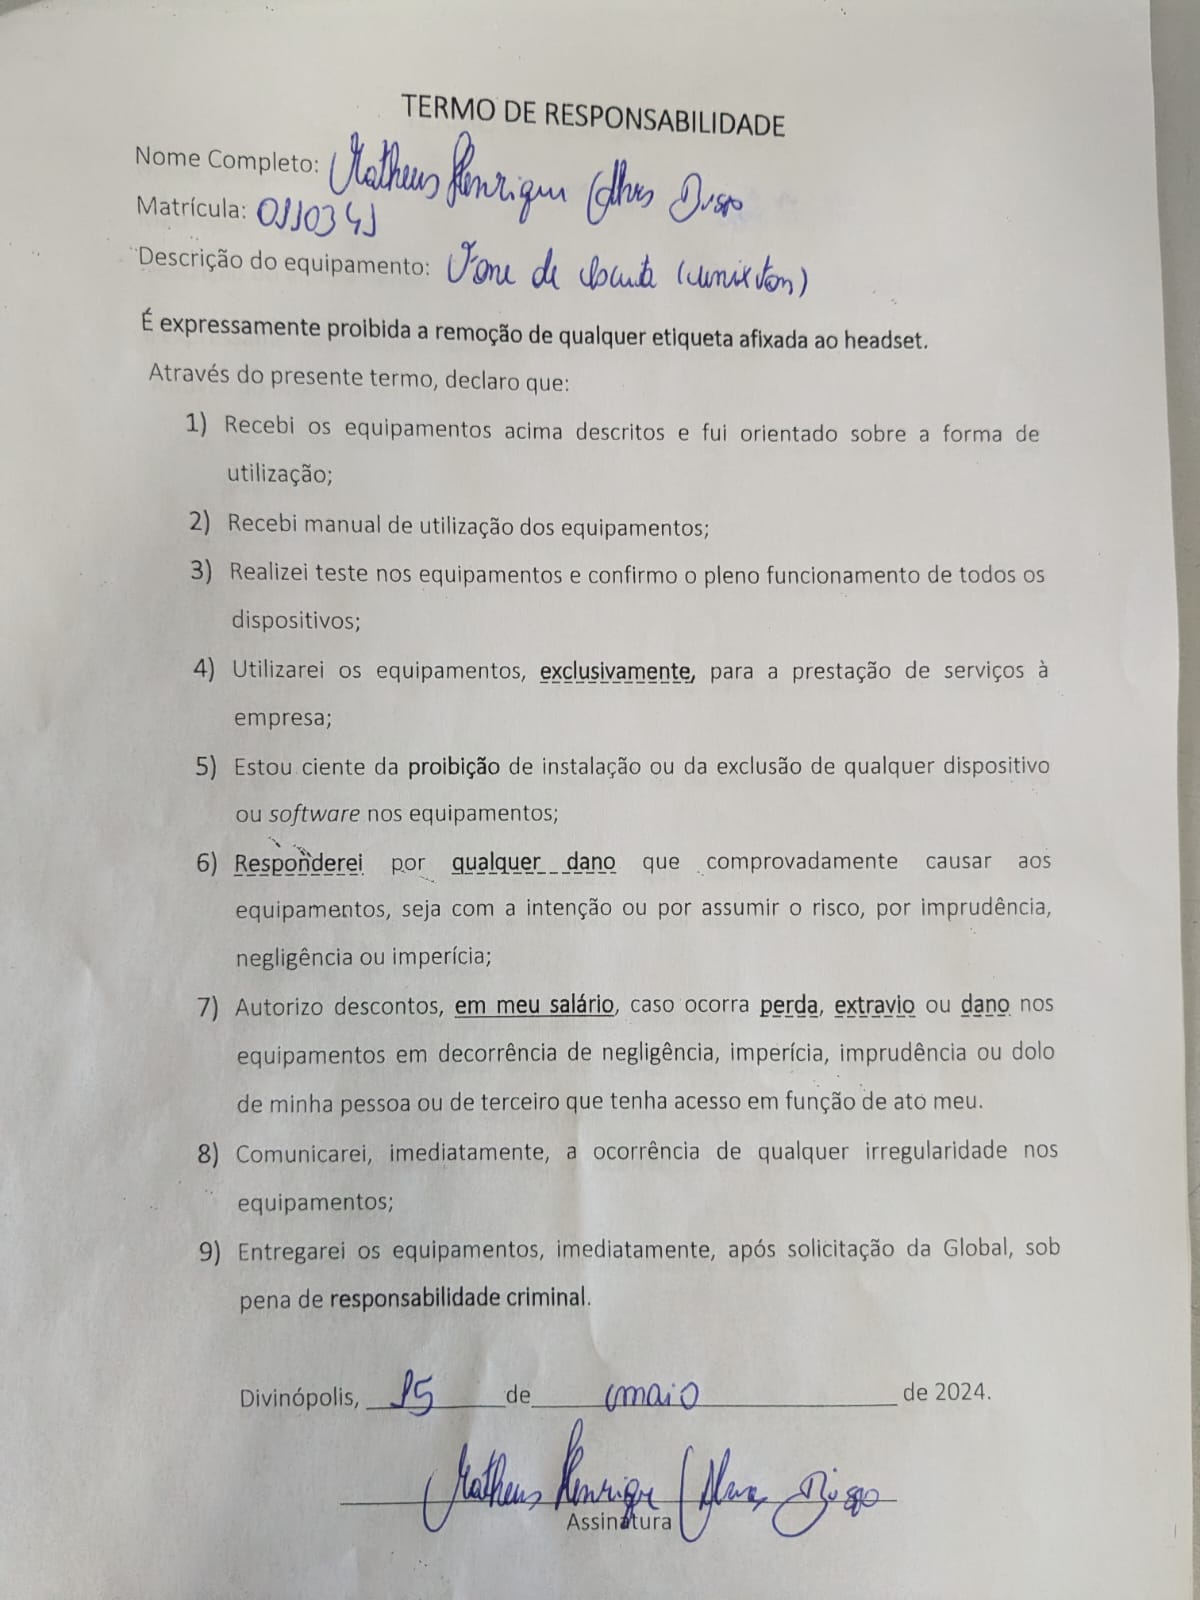 TERMO DE RESPONSABILIDADE
Nome Completo: Matheus Henrique Alves
Matrícula: 0110341
Descrição do equipamento: Fone de (unixtron)
É expressamente proibida a remoção de qualquer etiqueta afixada ao headset.
Através do presente termo, declaro que:
1) Recebi os equipamentos acima descritos e fui orientado sobre a forma de
utilização;
2) Recebi manual de utilização dos equipamentos;
3) Realizei teste nos equipamentos e confirmo o pleno funcionamento de todos os
dispositivos;
4) Utilizarei os equipamentos, exclusivamente, para a prestação de serviços à
empresa;
5) Estou ciente da proibição de instalação ou da exclusão de qualquer dispositivo
ou software nos equipamentos;
6) Responderei por qualquer dano que comprovadamente causar aos
equipamentos, seja com a intenção ou por assumir o risco, por imprudência,
negligência ou imperícia;
7) Autorizo descontos, em meu salário, caso ocorra perda, extravio ou dano nos
equipamentos em decorrência de negligência, imperícia, imprudência ou dolo
de minha pessoa ou de terceiro que tenha acesso em função de ato meu.
8) Comunicarei, imediatamente, a ocorrência de qualquer irregularidade nos
equipamentos;
9) Entregarei os equipamentos, imediatamente, após solicitação da Global, sob
pena de responsabilidade criminal.
Divinópolis, 15 de maio de 2024.
Matheus Henrique Alves
Assinatura